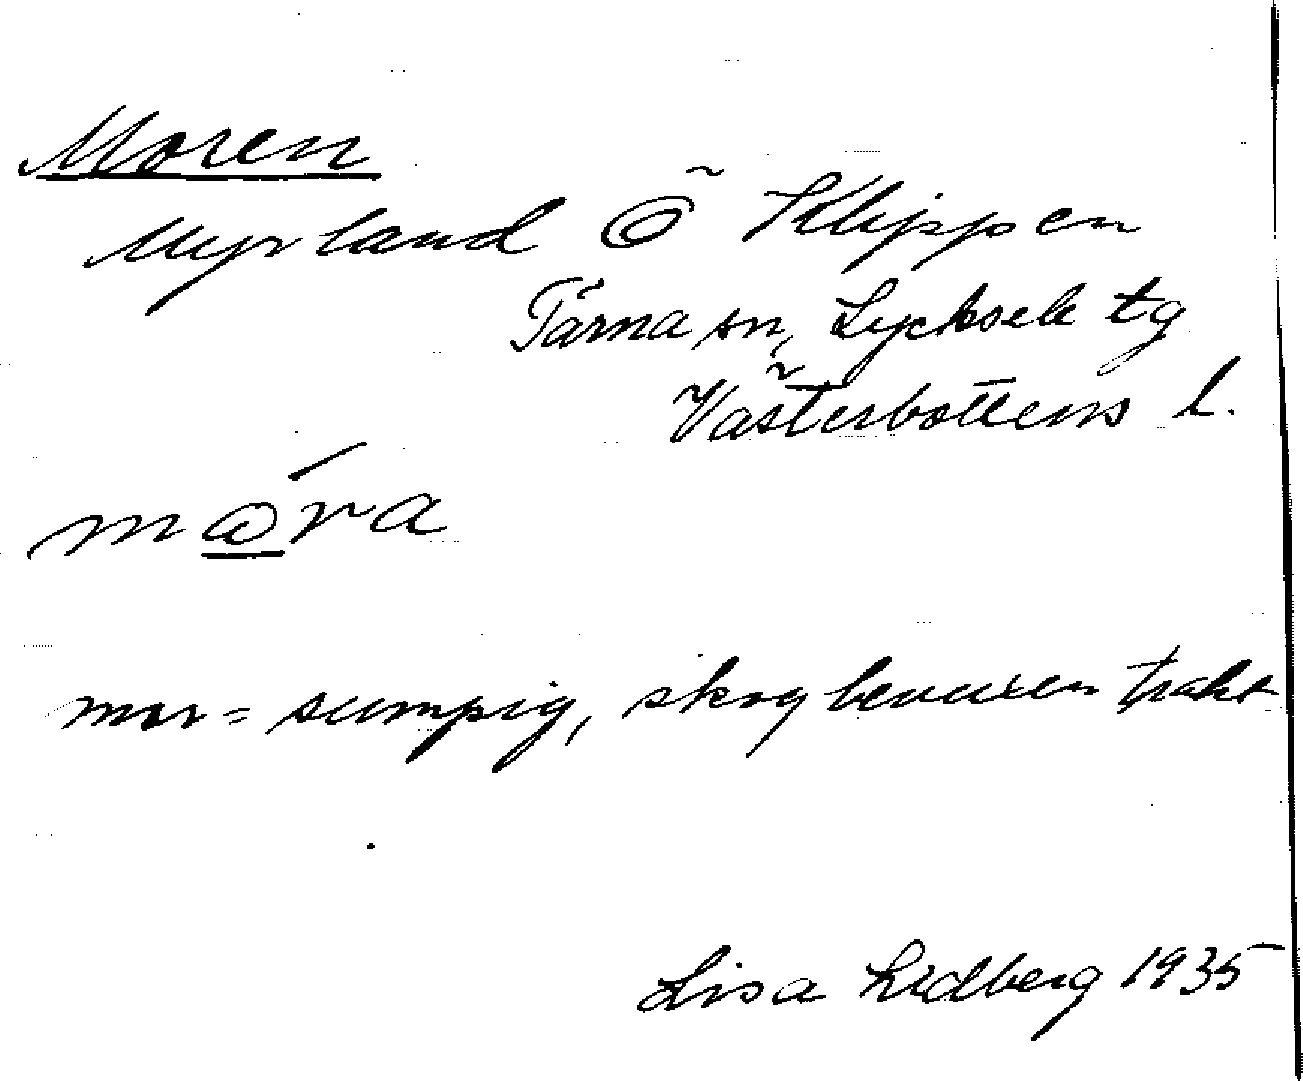 Moren
Myrland Ö Klippen
Tärna sn, Lycksele tg
Västerbottens l.
måra
mor = sumpig, skogbevuxen trakt
Lisa Lidberg 1935